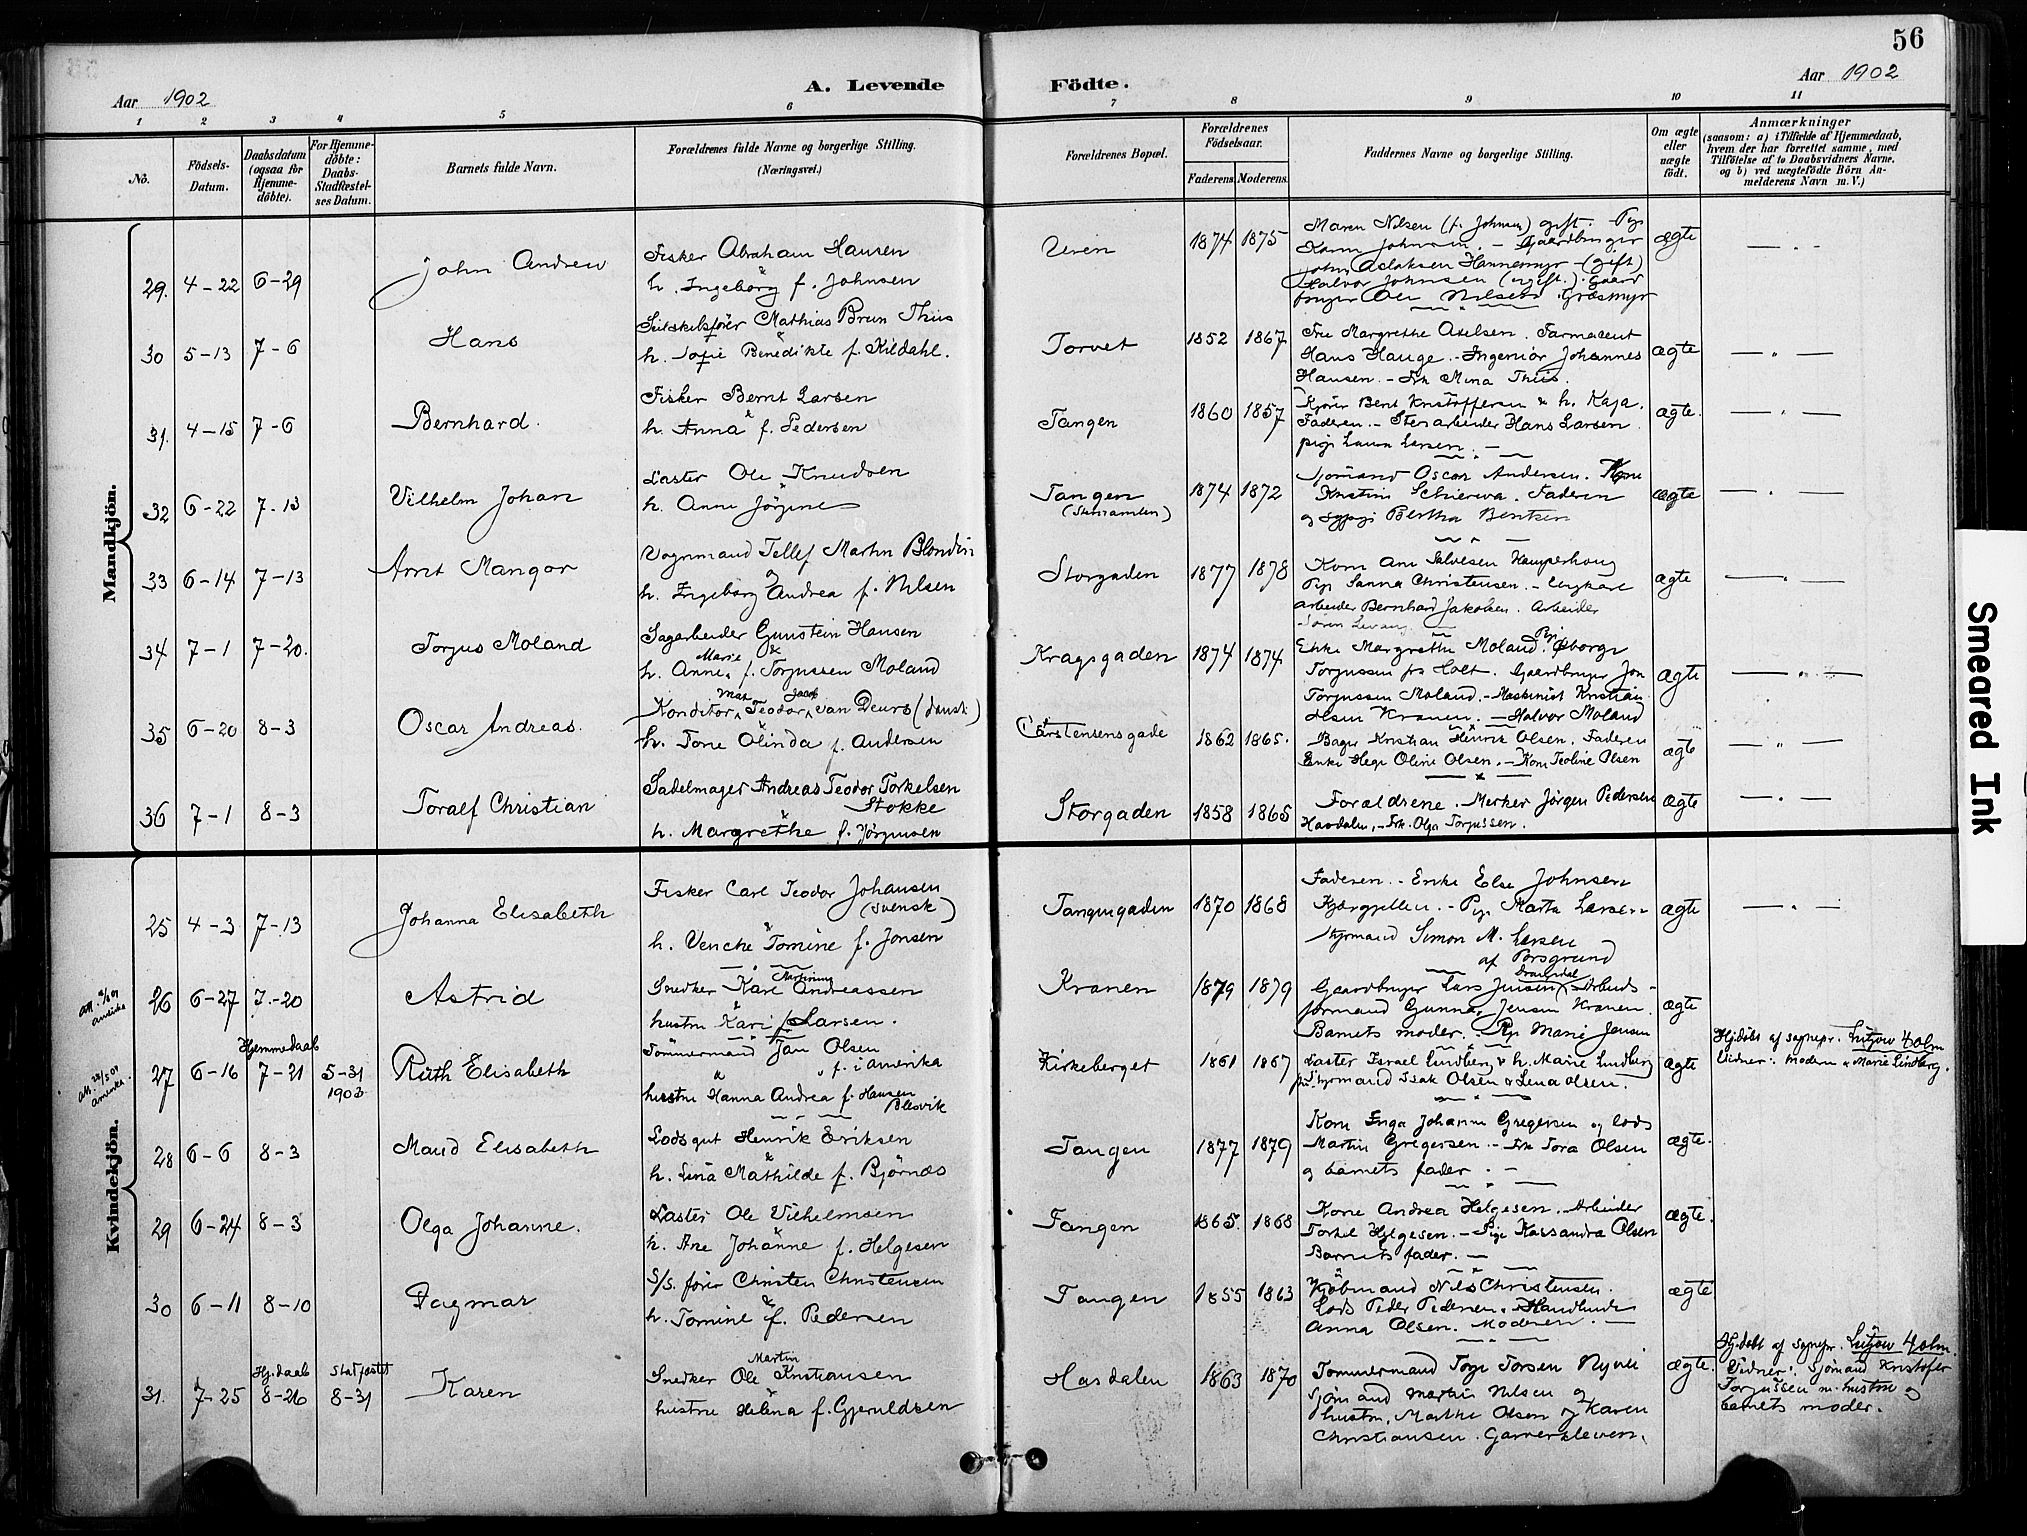 56
Aar 1902
A. Levende
Födte.
Aar 1902
1 2 3 4 5 6 7 8 9 10 11
No.
Födsels-
Datum.
Daabsdatum
(ogsaa for
Hjemme-
döbte).
For Hjemme-
döbte:
Daabs-
Stadfæstel-
ses Datum.
Barnets fulde Navn.
Forældrenes fulde Navne og borgerlige Stilling.
(Næringsvei.)
Forældrenes Bopæl.
Forældrenes
Födselsaar.
Faderens Moderens.
Faddernes Navne og borgerlige Stilling.
Om ægte
eller
uægte
födt.
Anmærkninger
(saasom: a) i Tilfælde af Hjemmedaab,
hvem der har forrettet samme, med
Tilföielse af to Daabsvidners Navne,
og b) ved uægtefödte Börn An-
melderens Navn m. V.)
Mandkjön.
29. 4-22 6-29
John Andrew
Fisker Abraham Hansen
&
h. Ingeborg f. Johnsen
Uren
1874 1875
Maren Nilsen (f. Johnsen) gift. Pige
Karen Johnsen. - Gaardbruger
John Aslaksen Hannemyr - (gift)
Halvor Johnsen (ugift.). Gaard
bruger Ole Nilsen Græsmyr
ægte
30 5-13 7-6
Hans
Seilskibsfører Mathias Brun Thiis
h. Sofie Benedikte f. Kildahl.
Torvet
1852 1867
Fru Margrethe Axelsen. Farmaceut
Hans Hauge. - Ingeniør Johannes
Hansen. - Frk Mina Thiis.
ægte
31. 4-15 7-6
Bernhard.
Fisker Bernt Larsen
&
h. Anna f. Pedersen
Tangen
1860 1857
Bent Kristoffersen & h. Kaja.
Faderen. - Stenarbeider Hans Larsen.
pige Laura Larsen. -
ægte.
32 6-22 7-13
Vilhelm Johan
Laster Ole Knudsen
&
h. Anne Jörgine
Tangen
1874 1872
Sjömand Oscar Andersen. Kone
Kristine. Faderen
og Bertha Bentsen
ægte
33 6-14 7-13
Arnt Mangor
Vognmand Tellef Martin Blondin
&
h. Ingeborg Andrea f. Nilsen
Storgaden
1877 1878
Kone Ane Salvesen Kamperhoug
Pige Sanna Christensen. - Ungkarl
arbeider Bernhard Jakobsen. Arbeider
Sören Levang.
ægte
34 7-1 7-20.
Torjus Moland
Sagarbeider Gunstein Hansen
Marie &
h. Anne f. Torjussen Moland
Kragsgaden
1874 1874
Enke Margrethe Moland. Pige
Torjussen fra Holt. Gaardbruger Jon
Torjussen Moland. - Maskinist Kristian
Olsen Kranen. - Halvor Moland
ægte
35 6-20 8-3
Oscar Andreas.
Max Jacob
Konditor Teodor van Deurs (dansk)
&
h. Tone Olinda f. Andersen
Carstensensgade
1862 1865.
Bager Kristian Henrik Olsen. Faderen
Enke Hege Oline Olsen. - Kone Teoline Olsen
ægte
36 7-1 8-3
Toralf Christian
Sadelmager Andreas Teodor Torkelsen
Stokke
&
h. Margrethe f. Jörgensen
Storgaden
1858 1865
Forældrene. Mærker Jörgen Pedersen
Hasdalen. - Frk. Olga Torjussen.
ægte
Kvindekjön.
25 4-3 7-13
Johanna Elisabeth
Fisker Carl Teodor Johansen
(svensk)
&
h. Venche Tomine f. Jonsen
Tangengaden
1870 1868
Faderen. - Enke Else Johnsen
Pige Marta Larsen
Styrmand Simon M. Larsen
af Porsgrund
ægte
26 6-27 7-20
Astrid
Martinius
Snedker Karl Andreassen
&
hustru Kari f. Larsen.
Kranen
1879 1879
Drangedal
Gaardbruger Lars Jensen. Arbeids-
formand Gunnar Jensen Kranen.
Barnets moder. Pige Marie Jensen
ægte
Hjemmedaab
27 6-16 7-21 5-31
1903
Ruth Elisabeth
Tømmermand Jan Olsen
f. i Amerika
&
hustru Hanna Andrea f. Hansen
Blesvik
Kirkeberget
1861 1867
Laster Israel Lindberg & h. Marie Lindberg
Styrmand Isak Olsen & Lena Olsen.
ægte
Hj.døbt af sognepr. Lützow Holm
Vidner: Modern & Marie Lindberg.
28 6-6 8-3
Maud Elisabeth
Lodsgut Henrik Eriksen
&
h. Lina Mathilde f. Bjørnæs
Tangen
1877 1879
Kone Inga Johanne Gregersen og lods
Martin Gregersen. - Frk Tora Olsen
og barnets fader. -
ægte.
29 6-24 8-3
Olga Johanne.
Laster Ole Vilhelmsen
&
h. Ane Johanne f. Helgesen
Tangen
1865. 1868
Kone Andrea Helgesen. Arbeider
Torkel Helgesen. - Pige Kassandra Olsen
Barnets fader. -
ægte.
30 6-11 8-10
Dagmar
S/S. fører Christen Christensen
&
h. Tomine f. Pedersen
Tangen
1855 1863
Kjøbmand Nils Christensen.
Lods Peder Pedersen. Handlende
Anna Olsen. Moderen. -
ægte
Hj.daab Stadfæstet
31. 7-25 8-26 8-31
Karen
Martin
Snedker Ole Kristiansen
&
hustru Helena f. Gjeruldsen
Hasdalen
1863 1870
Tømmermand Torje Torsen Nyvei
Sjømand Martin Nilsen og
hustru, Marthe Olsen og Karen
Christiansen. Garverkleven.
ægte.
Hj.døbt af sognepr. Lützow Holm
Vidner: Sjømand Kristofer
Torjussen m. hustru og
barnets moder.
Smeared Ink